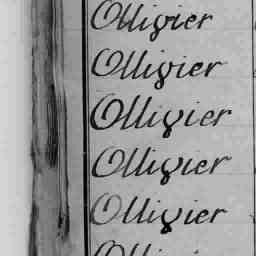 Olligier
Olligier
Olligier
Olligier
Olligier
Olligier